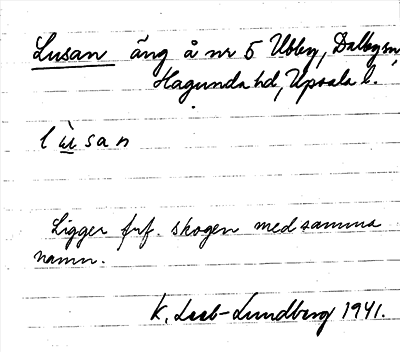 Lusan äng å nr 5 Ubby, Dalby sn,
Hagunda hd, Upsala l.
lu̠̇san
Ligger inf. skogen med samma
namn.
K. Leeb-Lundberg 1941.